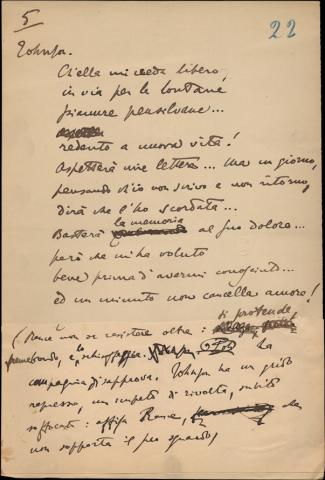 5
22
Johnson.
Ch'ella mi creda libero,
in via per le lontane
pianure pensilvane...
redento a nuova vita!
Aspetterà mie lettere... Ma un giorno,
pensando ch'io non scrivo e non ritorno,
dirà che l'ho scordata...
Basterà la memoria al suo dolore...
però che m'ha voluto
bene prima d'avermi conosciuto...
ed un minuto non cancella amore!
(Rance non sa resistere oltre: si protende
fremebondo, e lo schiaffeggia. La
compagnia disapprova. Johnson ha un grido
represso, un impeto di rivolta, subito
soffocati: affisa Rance, che
non sopporta il suo sguardo)